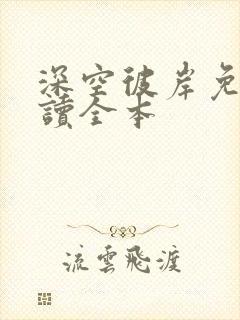 深空彼岸免
讀全本
流雲飛渡